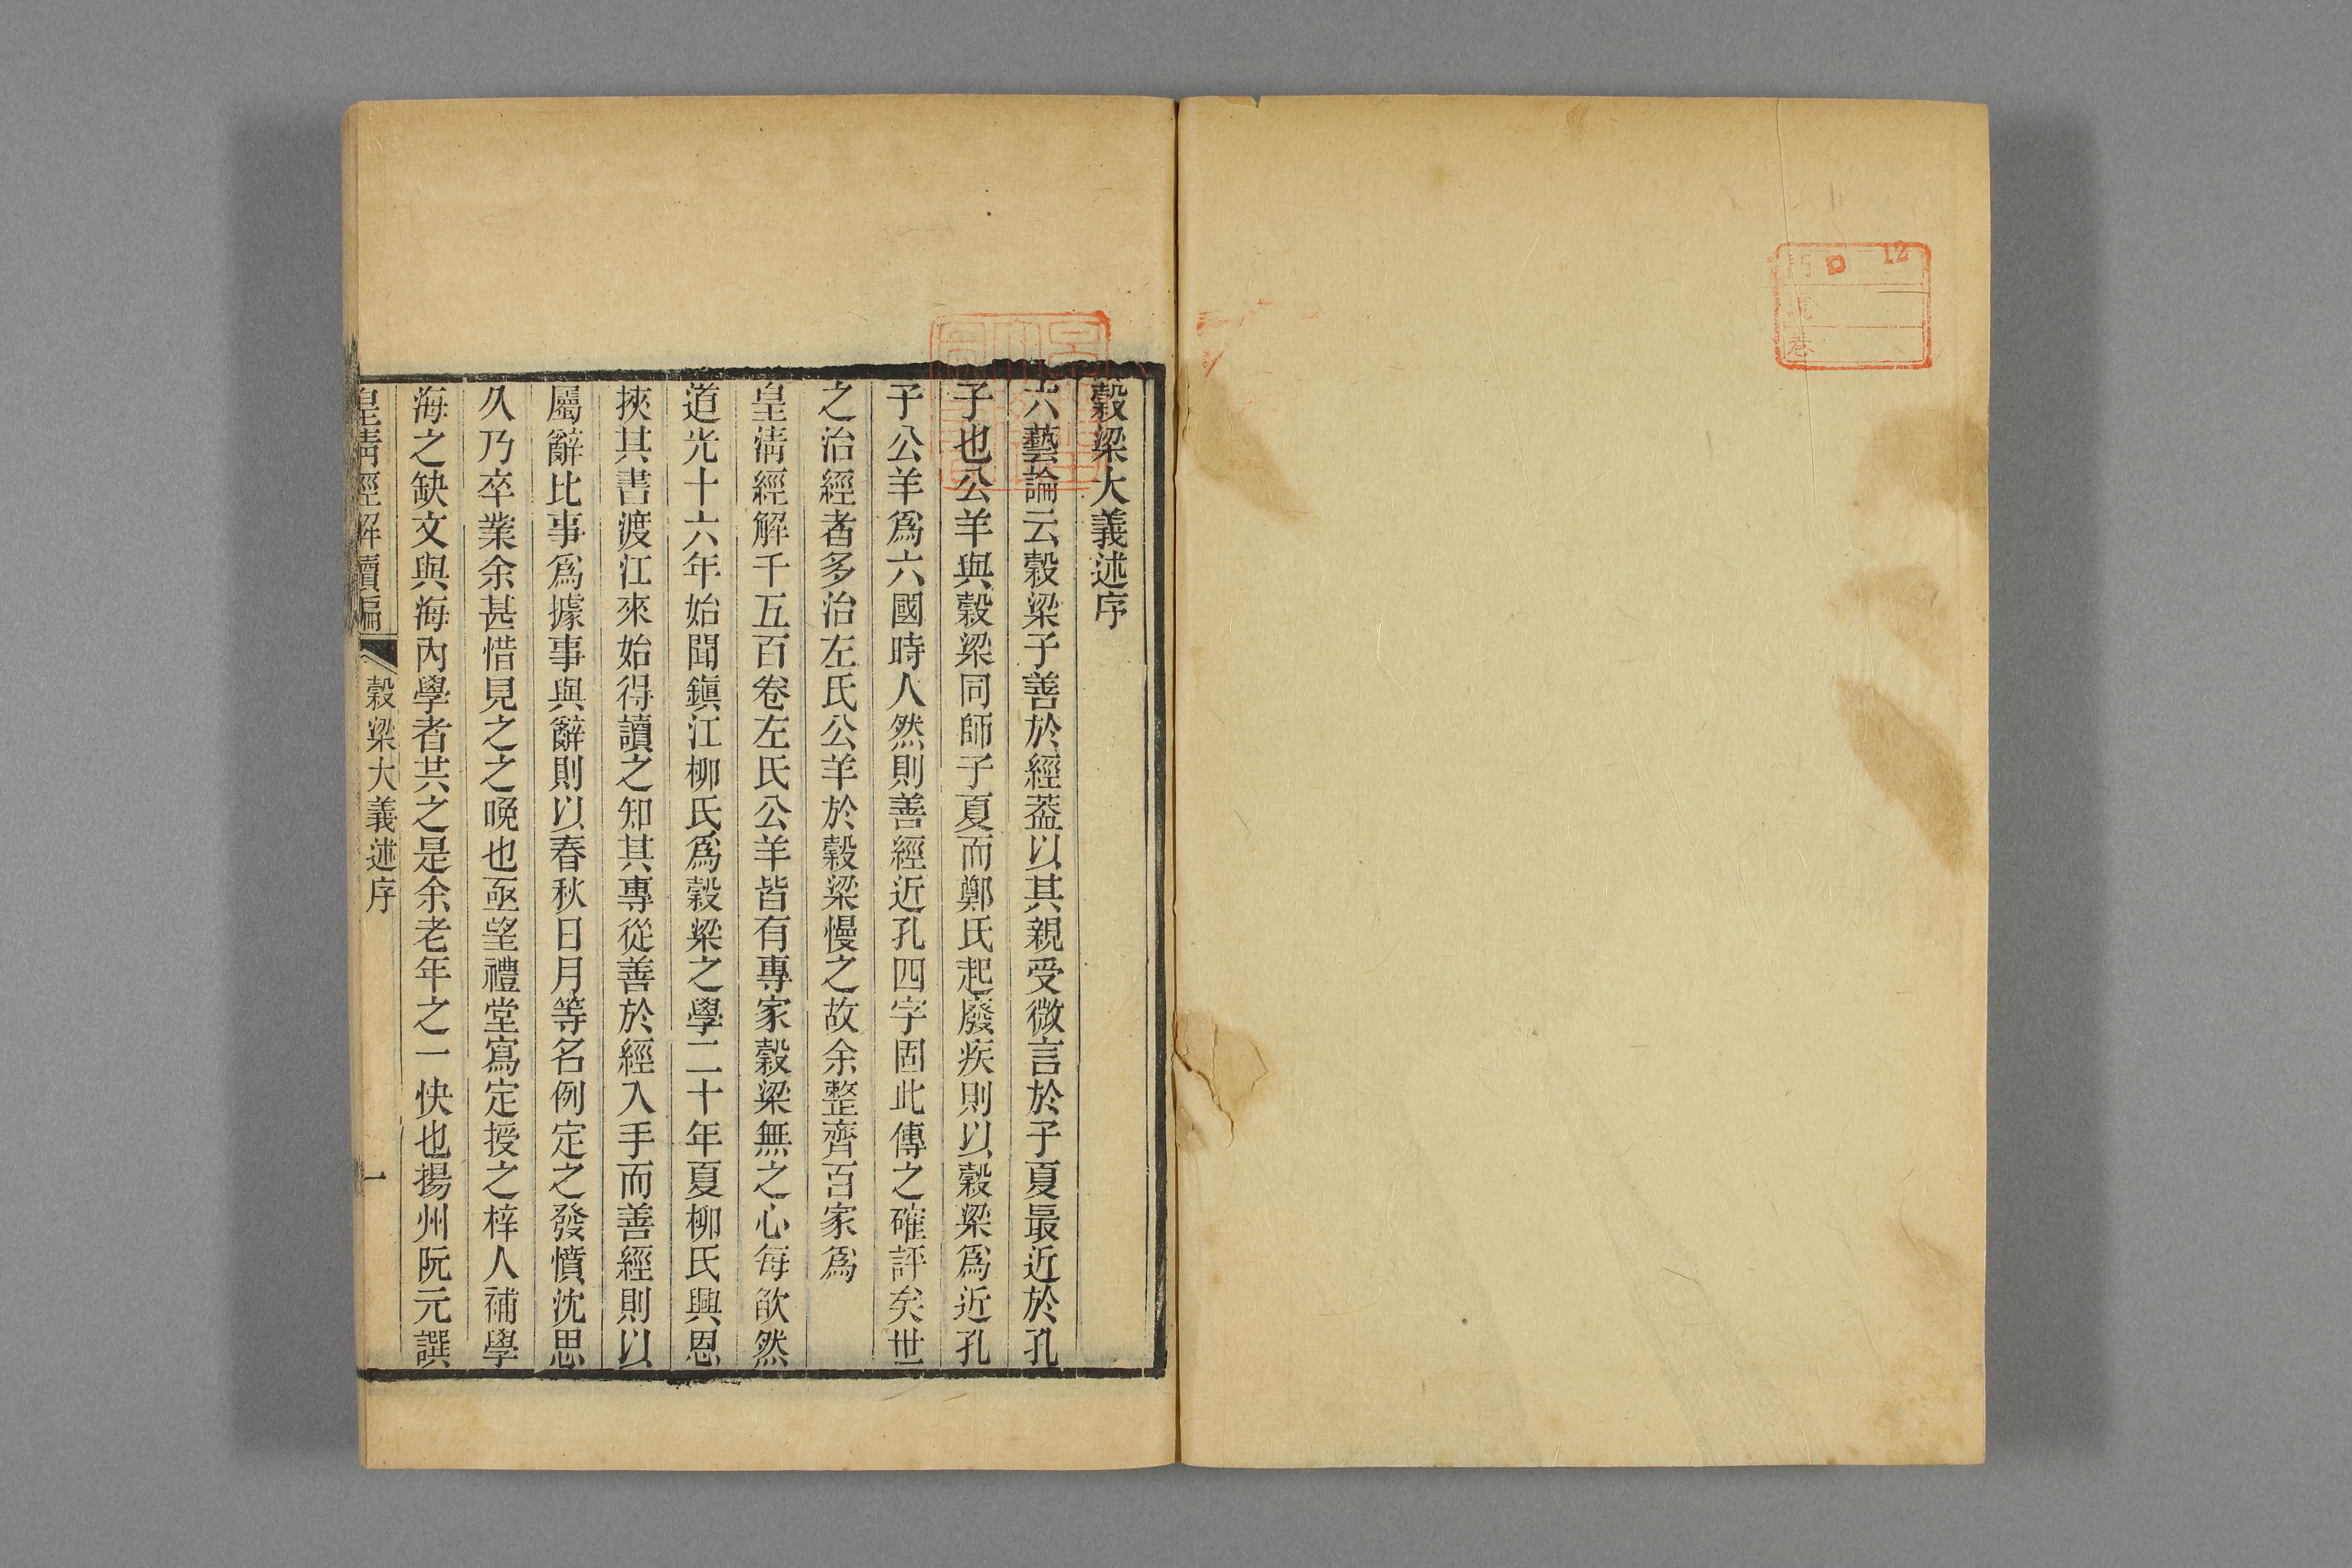 12
門
號
巷
穀梁大義述序
六藝論云穀梁子善於經葢以其親受微言於子夏最近於孔
子也公羊與穀梁同師子夏而鄭氏起廢疾則以穀梁爲近孔
子公羊爲六國時人然則善經近孔四字固此傳之確評矣世
之治經者多治左氏公羊於穀梁慢之故余整齊百家爲
皇淸經解千五百卷左氏公羊皆有專家穀梁無之心每欿然
道光十六年始聞鎭江柳氏爲穀梁之學二十年夏柳氏興恩
挾其書渡江來始得讀之知其專從善於經入手而善經則以
屬辭比事爲據事與辭則以春秋日月等名例定之發憤沈思
久乃卒業余甚惜見之之晚也亟望禮堂寫定授之梓人補學
海之缺文與海內學者共之是余老年之一快也揚州阮元譔
皇淸經解續編
穀梁大義述序
一